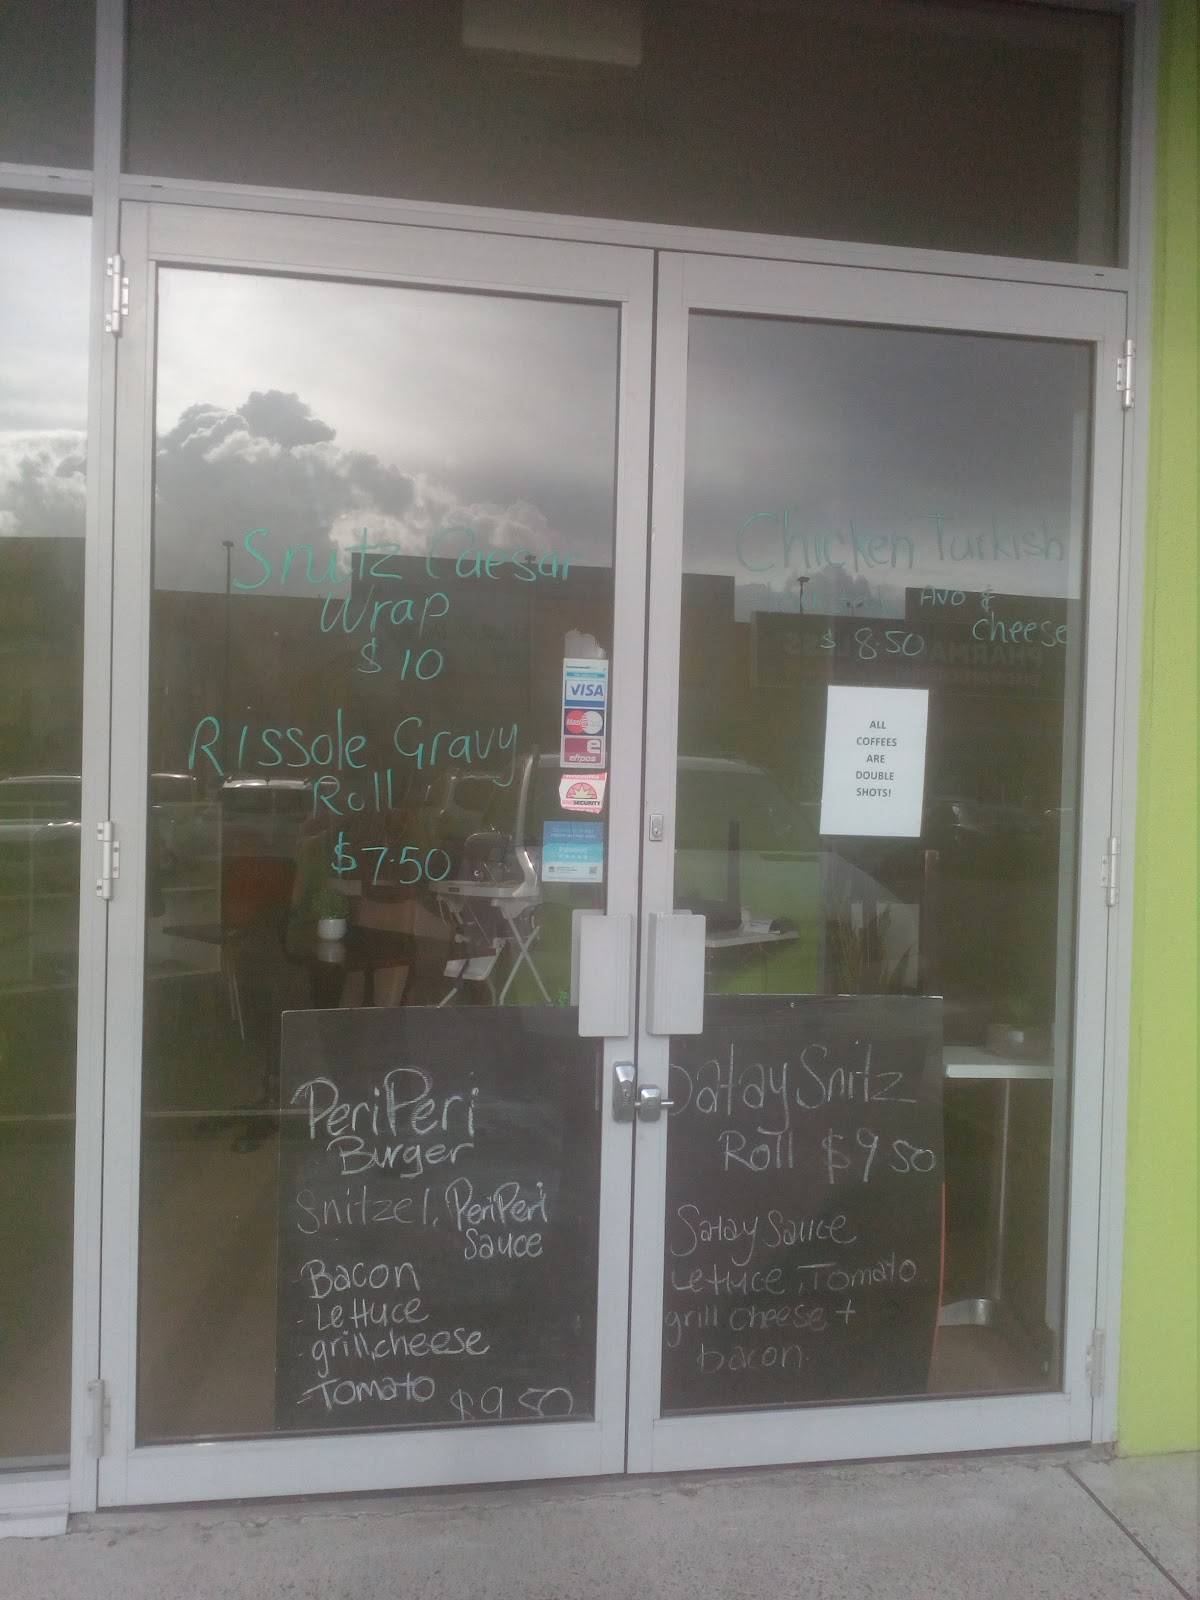 Snitz Caesar
Wrap
$10
Rissole Gravy
Roll
$7.50
VISA
MasterCard
eftpos
SECURITY
Chicken Turkish
Avo &
cheese
$8.50
PHARMA
ALL
COFFEES
ARE
DOUBLE
SHOTS!
PeriPeri
Burger
Snitzel, PeriPeri
Sauce
- Bacon
- Lettuce
- grill, cheese
- Tomato $9.50
Satay Snitz
Roll $9.50
Satay Sauce
Lettuce, Tomato
grill cheese +
bacon.